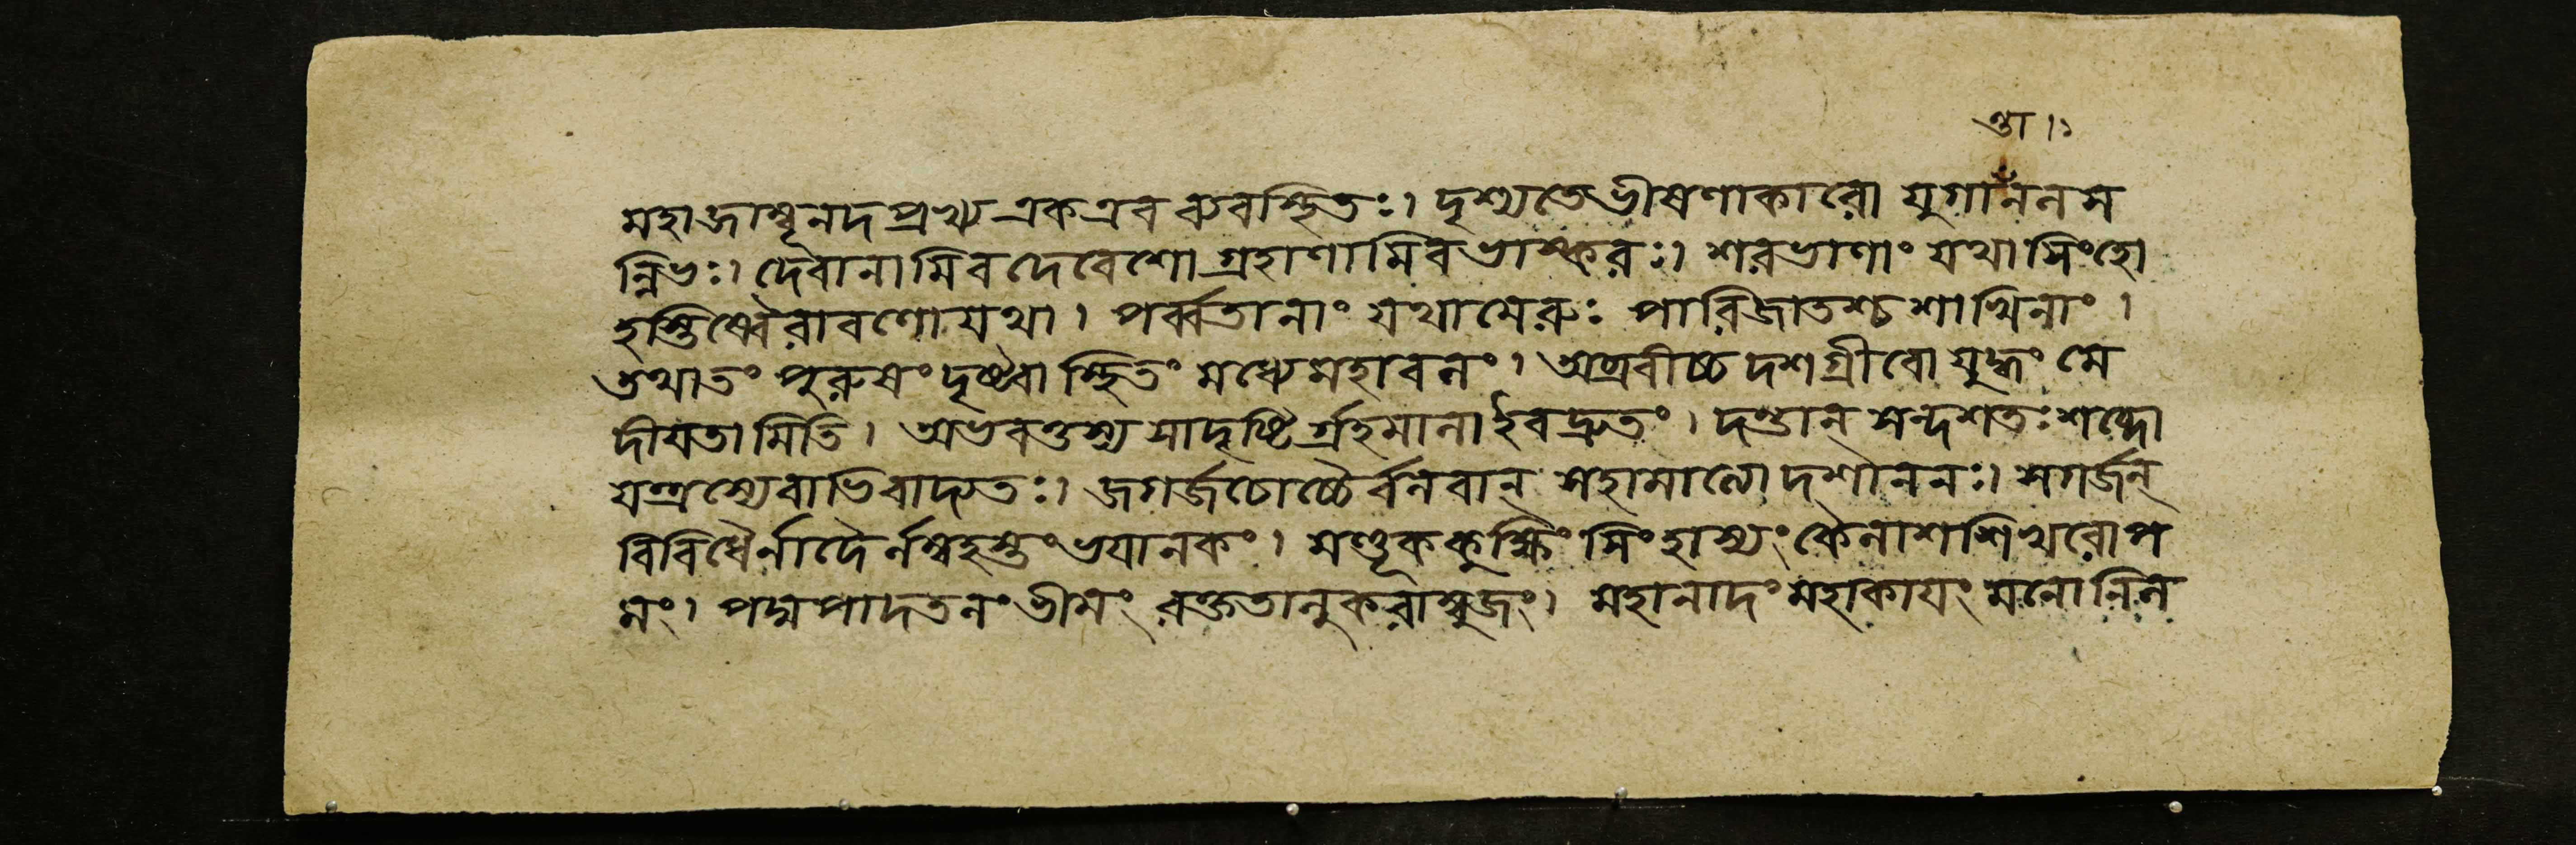 ন্তা।১
মহাজাম্বূনদপ্রখ্য একএব ব্যবস্থিতঃ। দৃশ্যতেভীষণাকারো যুগাননস
ন্নিভঃ। দেবানামিবদেবেশো গ্রহাণামিবভাস্করঃ। শরভাণাং যথাসিংহো
হস্তিষ্বৈরাবণোযথা। পর্ব্বতানাং যথামেরুঃ পারিজাতশ্চশাখিনাং।
তথাতং পুরুষংদৃষ্ট্বাস্থিতং মধ্যেমহাবনং। অব্রবীচ্চদশগ্রীবোযুদ্ধং মে
দীযতামিতি। অভবত্তস্য সাদৃষ্টির্গ্রহমানাইবদ্রুতং। দণ্ডান্ সন্দশতঃশব্দো
যন্ত্রস্যেবাভিবাদ্যতঃ। জগর্জচোচ্চৈর্বনবান্ সহামাত্যোদশাননঃ। সগর্জন্
বিবিধৈর্নাদৈর্নম্বহস্তংভযানকং। মণ্ডূককুক্ষিং সিংহাস্যংকৈনাশশিখরোপ
মং। পদ্মপাদতনংভীমং রক্ততানুকরাম্বুজং। মহানাদংমহাকাযং মনোনিন